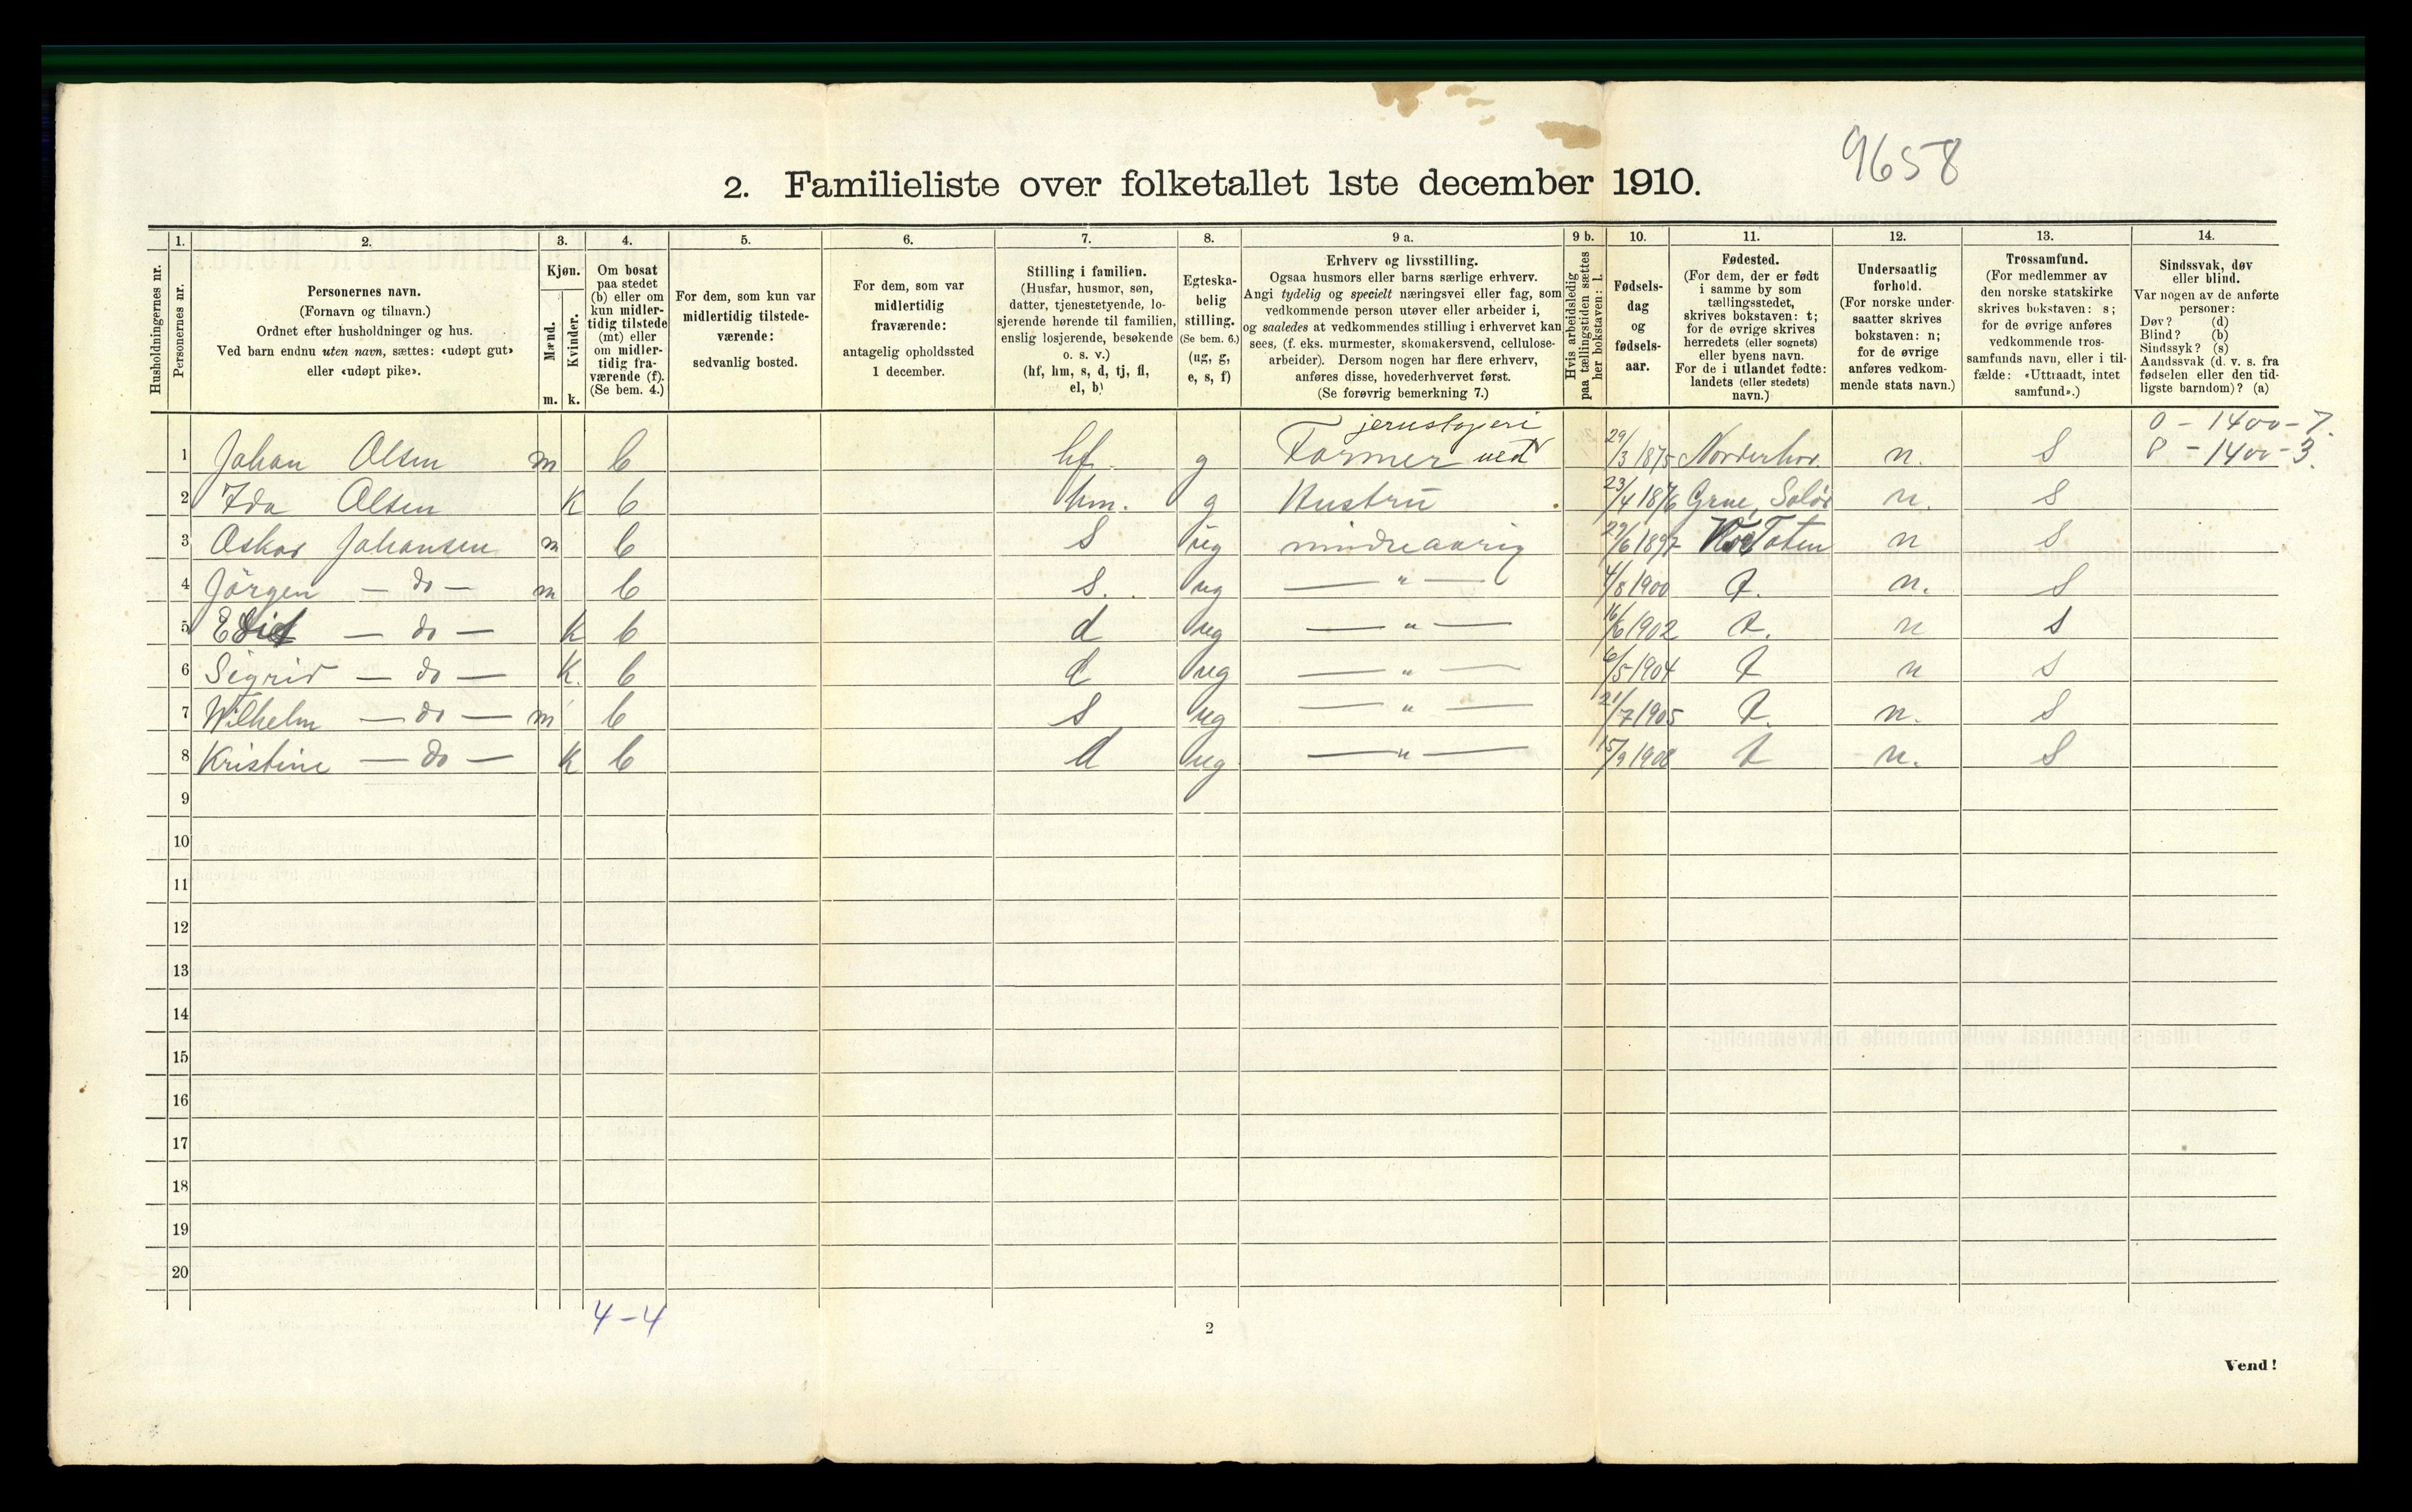 9658
2. Familieliste over folketallet 1ste december 1910.
Husholdningernes nr.
1.
Personernes nr.
2.
Personernes navn.
(Fornavn og tilnavn.)
Ordnet efter husholdninger og hus.
Ved barn endnu uten navn, sættes: «udøpt gut»
eller «udøpt pike».
3.
Kjøn.
Mænd.
m.
Kvinder.
k.
4.
Om bosat
paa stedet
(b) eller om
kun midler-
tidig tilstede
(mt) eller
om midler-
tidig fra-
værende (f).
(Se bem. 4.)
5.
For dem, som kun var
midlertidig tilstede-
værende:
sedvanlig bosted.
6.
For dem, som var
midlertidig
fraværende:
antagelig opholdssted
1 december.
7.
Stilling i familien.
(Husfar, husmor, søn,
datter, tjenestetyende, lo-
sjerende hørende til familien,
enslig losjerende, besøkende
o. s. v.)
(hf, hm, s, d, tj, fl,
el, b)
8.
Egteska-
belig
stilling.
(Se bem. 6.)
(ug, g,
e, s, f)
9 a.
Erhverv og livsstilling.
Ogsaa husmors eller barns særlige erhverv.
Angi tydelig og specielt næringsvei eller fag, som
vedkommende person utøver eller arbeider i,
og saaledes at vedkommendes stilling i erhvervet kan
sees, (f. eks. murmester, skomakersvend, cellulose-
arbeider). Dersom nogen har flere erhverv,
anføres disse, hovederhvervet først.
(Se forøvrig bemerkning 7.)
9 b.
Hvis arbeidsledig
paa tællingstiden sættes
her bokstaven: l.
10.
Fødsels-
dag
og
fødsels-
aar.
11.
Fødested.
(For dem, der er født
i samme by som
tællingsstedet,
skrives bokstaven: t;
for de øvrige skrives
herredets (eller sognets)
eller byens navn.
For de i utlandet fødte:
landets (eller stedets)
navn.)
12.
Undersaatlig
forhold.
(For norske under-
saatter skrives
bokstaven: n;
for de øvrige
anføres vedkom-
mende stats navn.)
13.
Trossamfund.
(For medlemmer av
den norske statskirke
skrives bokstaven: s;
for de øvrige anføres
vedkommende tros-
samfunds navn, eller i til-
fælde: «Uttraadt, intet
samfund».)
14.
Sindssvak, døv
eller blind.
Var nogen av de anførte
personer:
Døv? (d)
Blind? (b)
Sindssyk? (s)
Aandssvak (d. v. s. fra
fødselen eller den tid-
ligste barndom)? (a)
jernstøperi 0 - 1400 - 7.
1 Johan Olsen m b hf. g Former ved 29/3 1875 Norderhov. n. S 8 - 1400 - 3.
2 Ida Olsen K b hm. g Hustru 23/4 1876 Grue, Solør n. S
3 Oskar Johansen m b S ug mindreaarig 29/6 1897 Toten n S
4 Jörgen — do — m b s. ug — " — 4/8 1900 t. n. S
5 — do — K b d ug — " — 16/6 1902 t. n S
6 Sigrid — do — K. b d ug — " — 6/5 1904 t n S
7 Wilhelm — do — m b S ug — " — 21/7 1905 t. n. S
8 Kristine — do — K b d ug — " — 15/9 1908 t n. S
9
10
11
12
13
14
15
16
17
18
19
20
4-4
2
Vend!